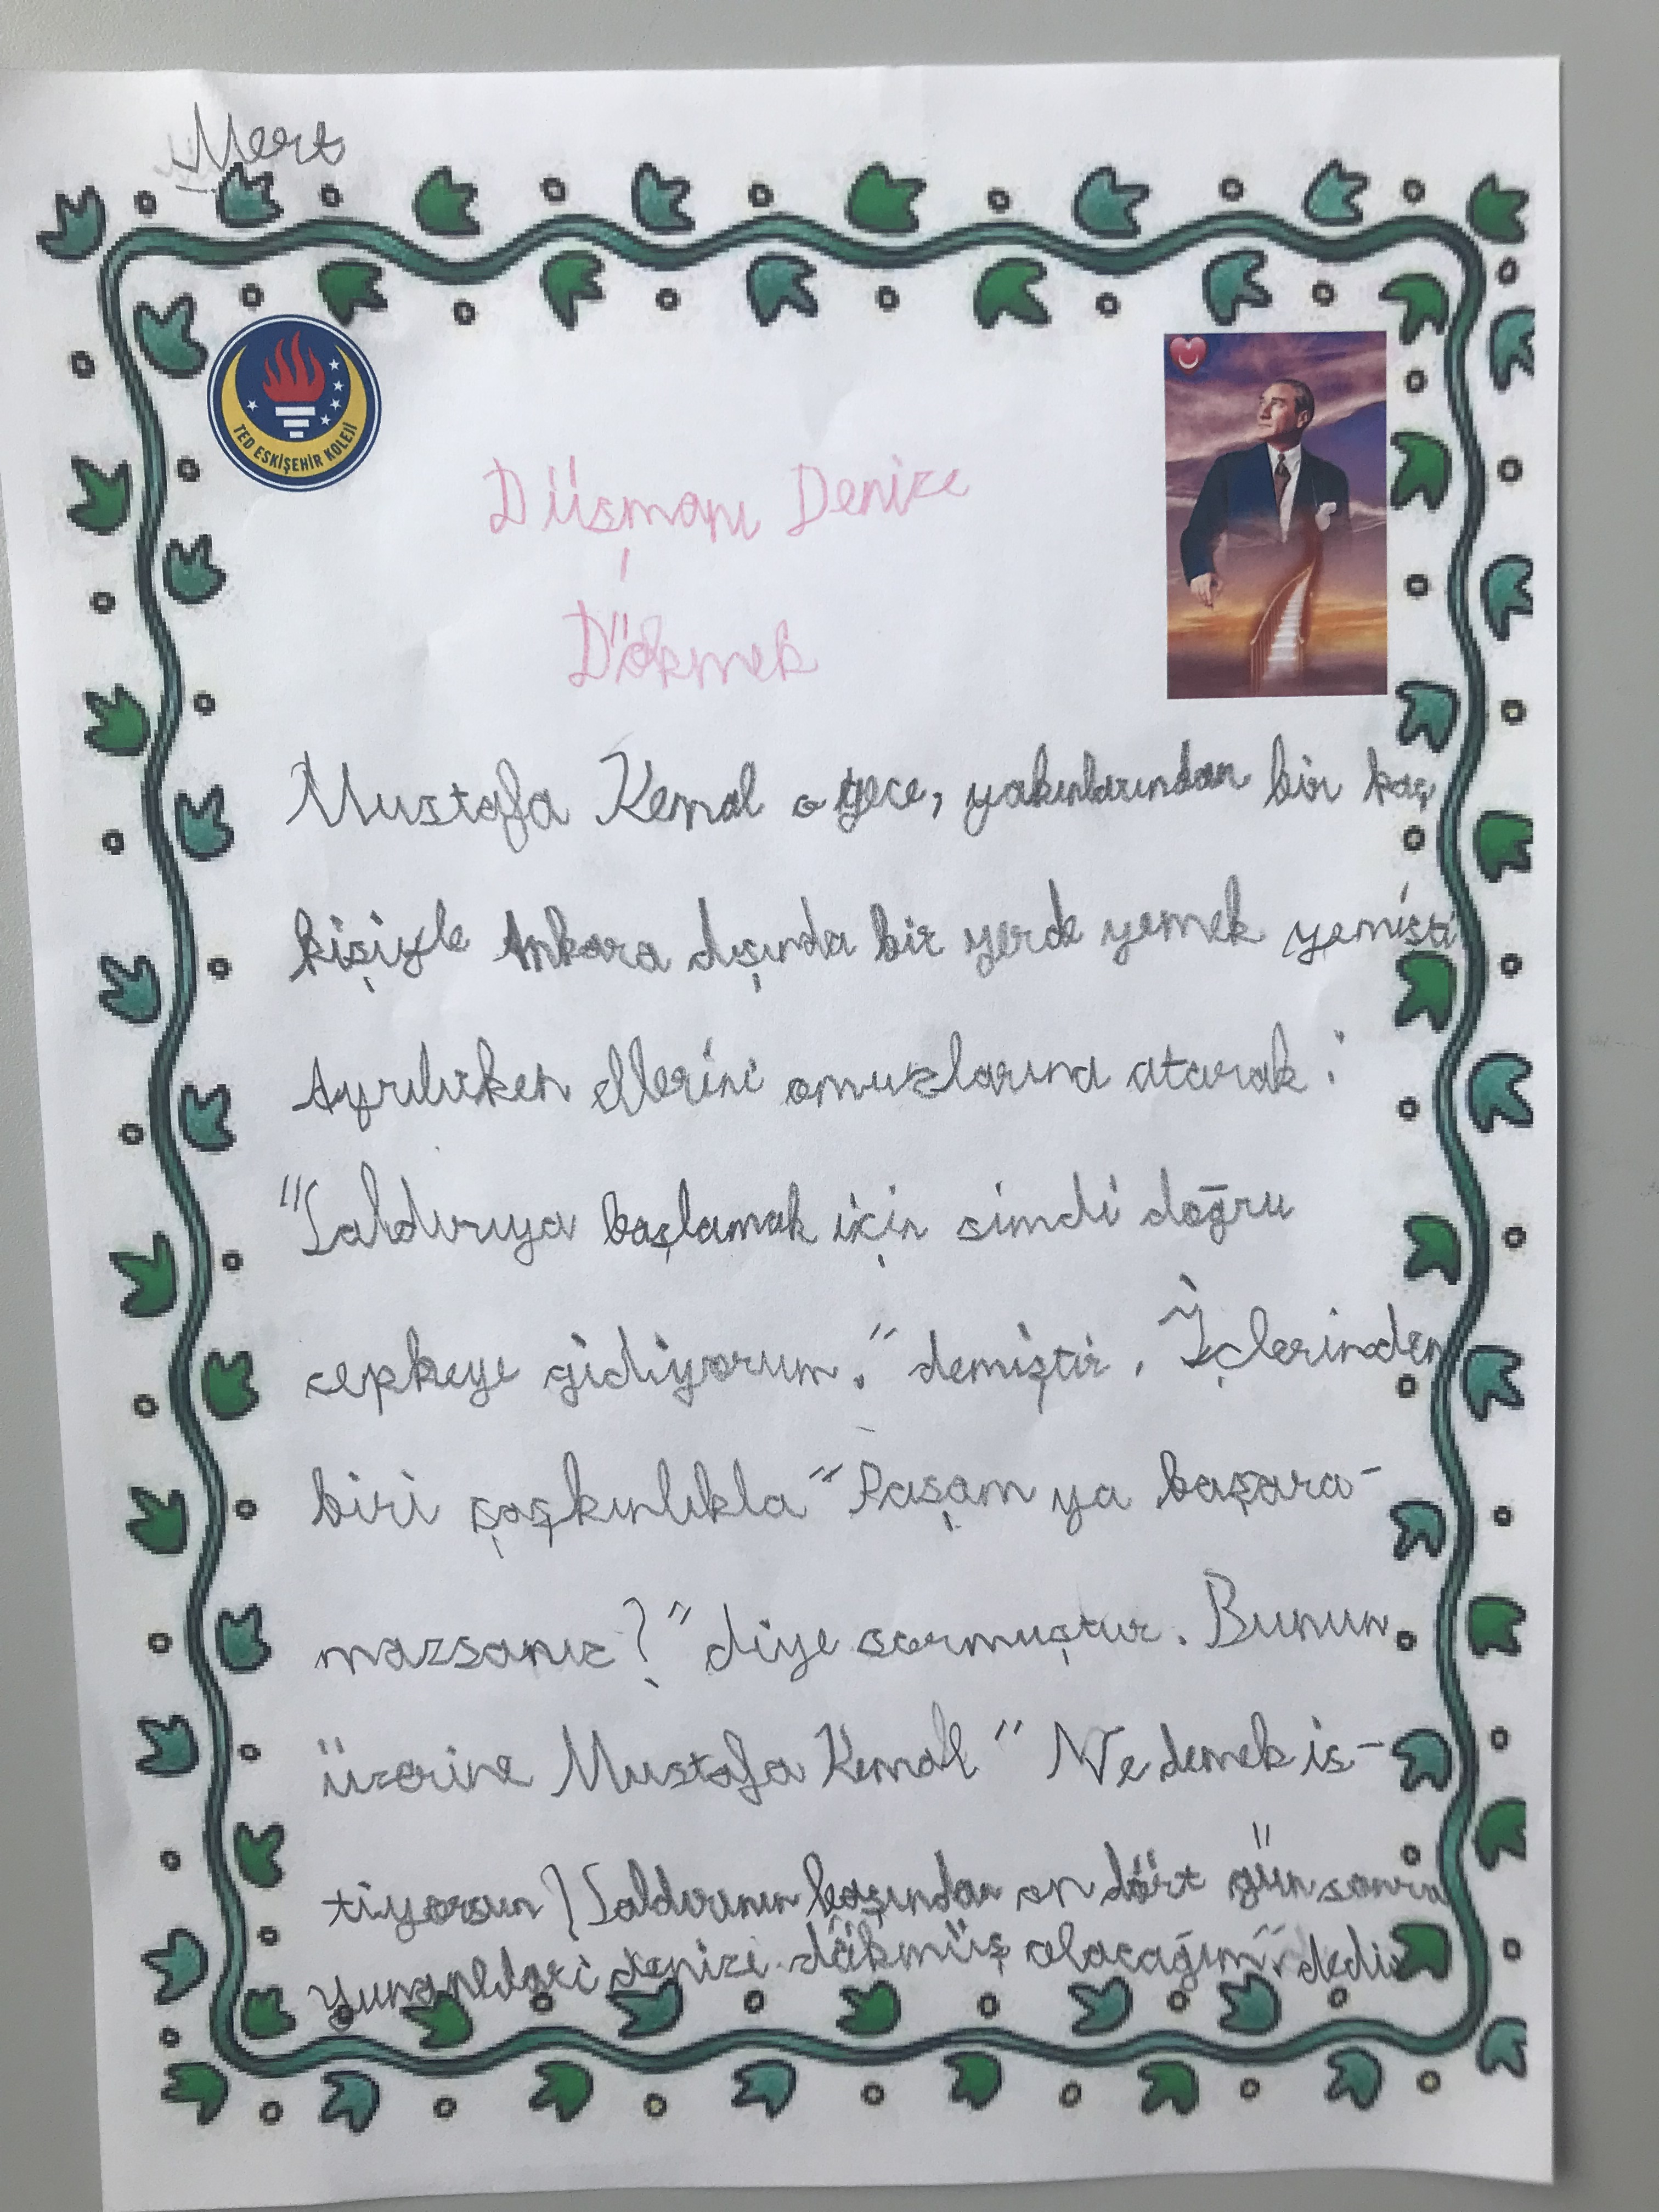 Mert
TED ESKİŞEHİR KOLEJİ
Düşmanı Denize
Dökmek
Mustafa Kemal o gece, yakınlarından bir kaç
kişiyle Ankara dışında bir yerde yemek yemişti
Ayrılırken ellerini omuzlarına atarak :
"Saldırıya başlamak için simdi doğru
cepheye gidiyorum." demiştir. İçlerinden
biri şaşkınlıkla "Paşam ya başara-
mazsanız?" diye sormuştur. Bunun
üzerine Mustafa Kemal " Ne demek is-
tiyorsun! Saldırının başından on dört gün sonra
yunanlıları denize dökmüş olacağım" dedi